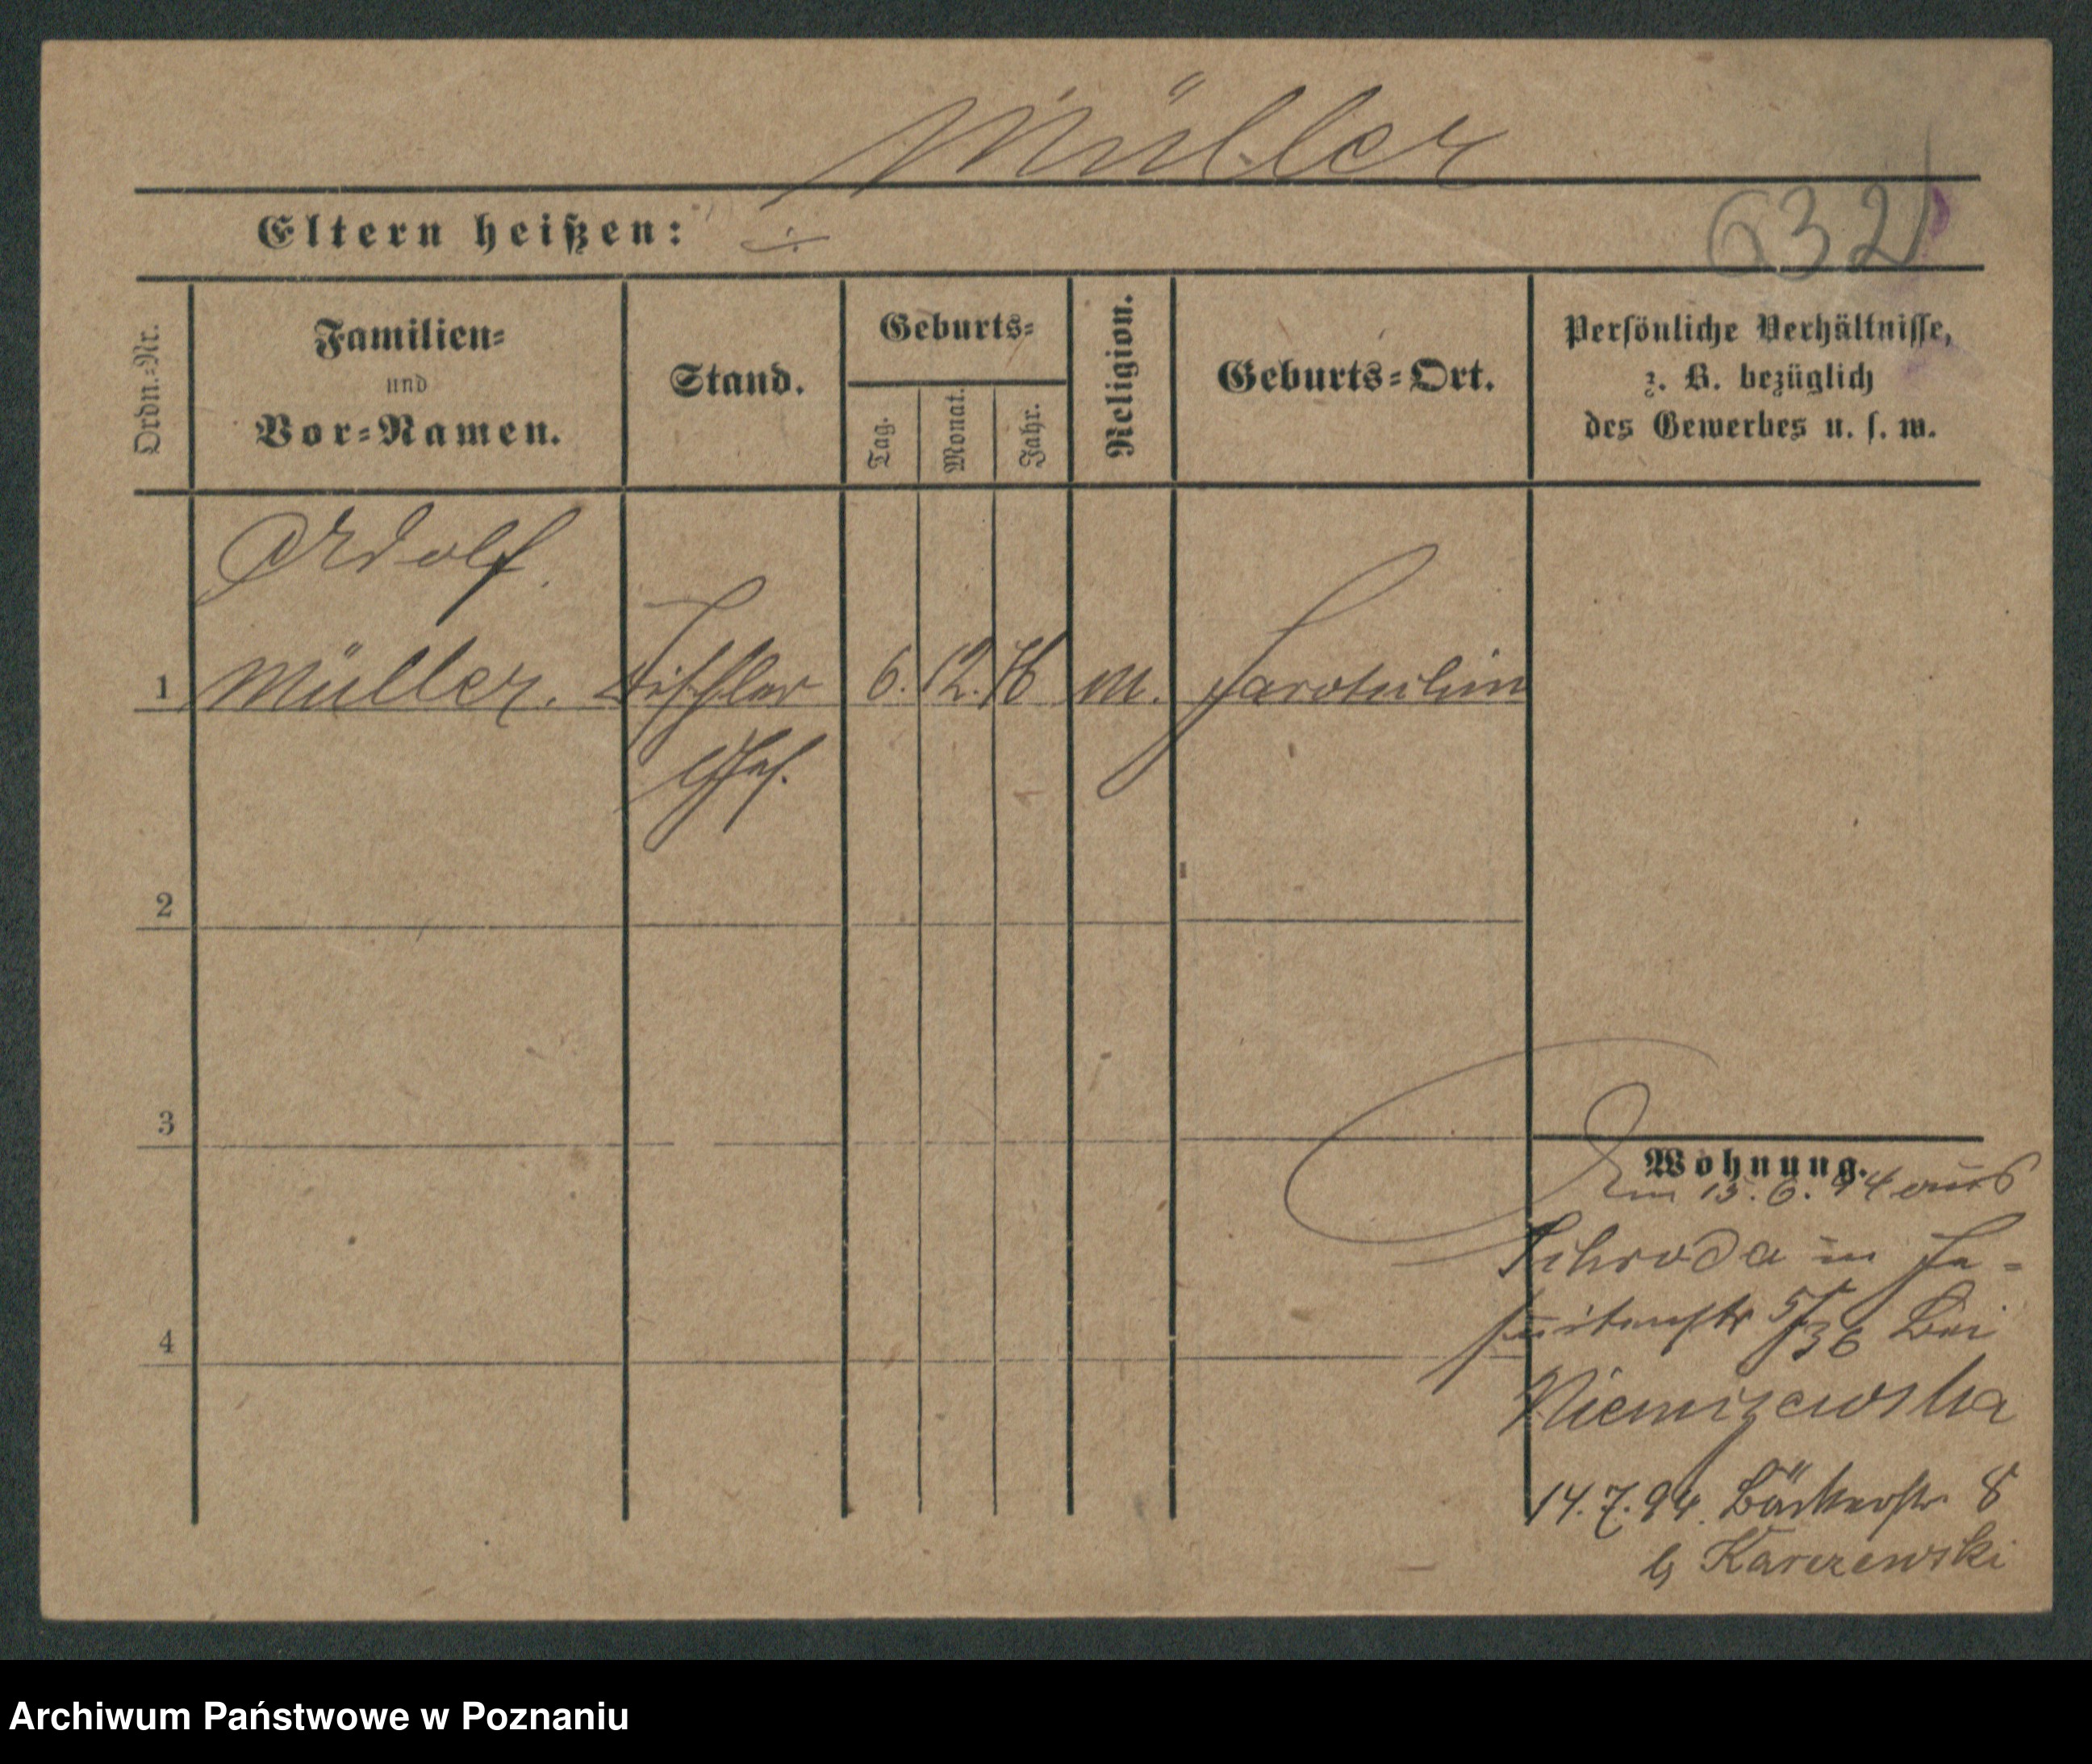 Müller
Eltern heißen: ÷
632
Ordn.-Nr.
Familien-
und
Vor-Namen.
Stand.
Geburts-
Tag.
Monat.
Jahr.
Religion.
Geburts-Ort.
Persönliche Verhältnisse,
z. B. bezüglich
des Gewerbes u. s. w.
Adolf.
1 Müller. Tischler 6. 12. 76 m.
2
3
4
Wohnung.
15. 6. 94 aus
Schroda in Je-
suitenstr 5/36 bei
14. 7. 94. Bäckerstr 8
b Karczewski
Archiwum Państwowe w Poznaniu